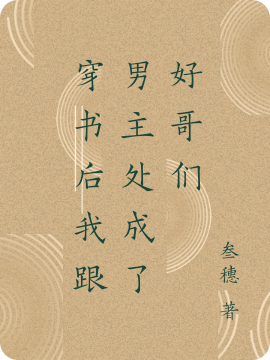 穿书后我跟
男主处成了
好哥们
叁穗 著